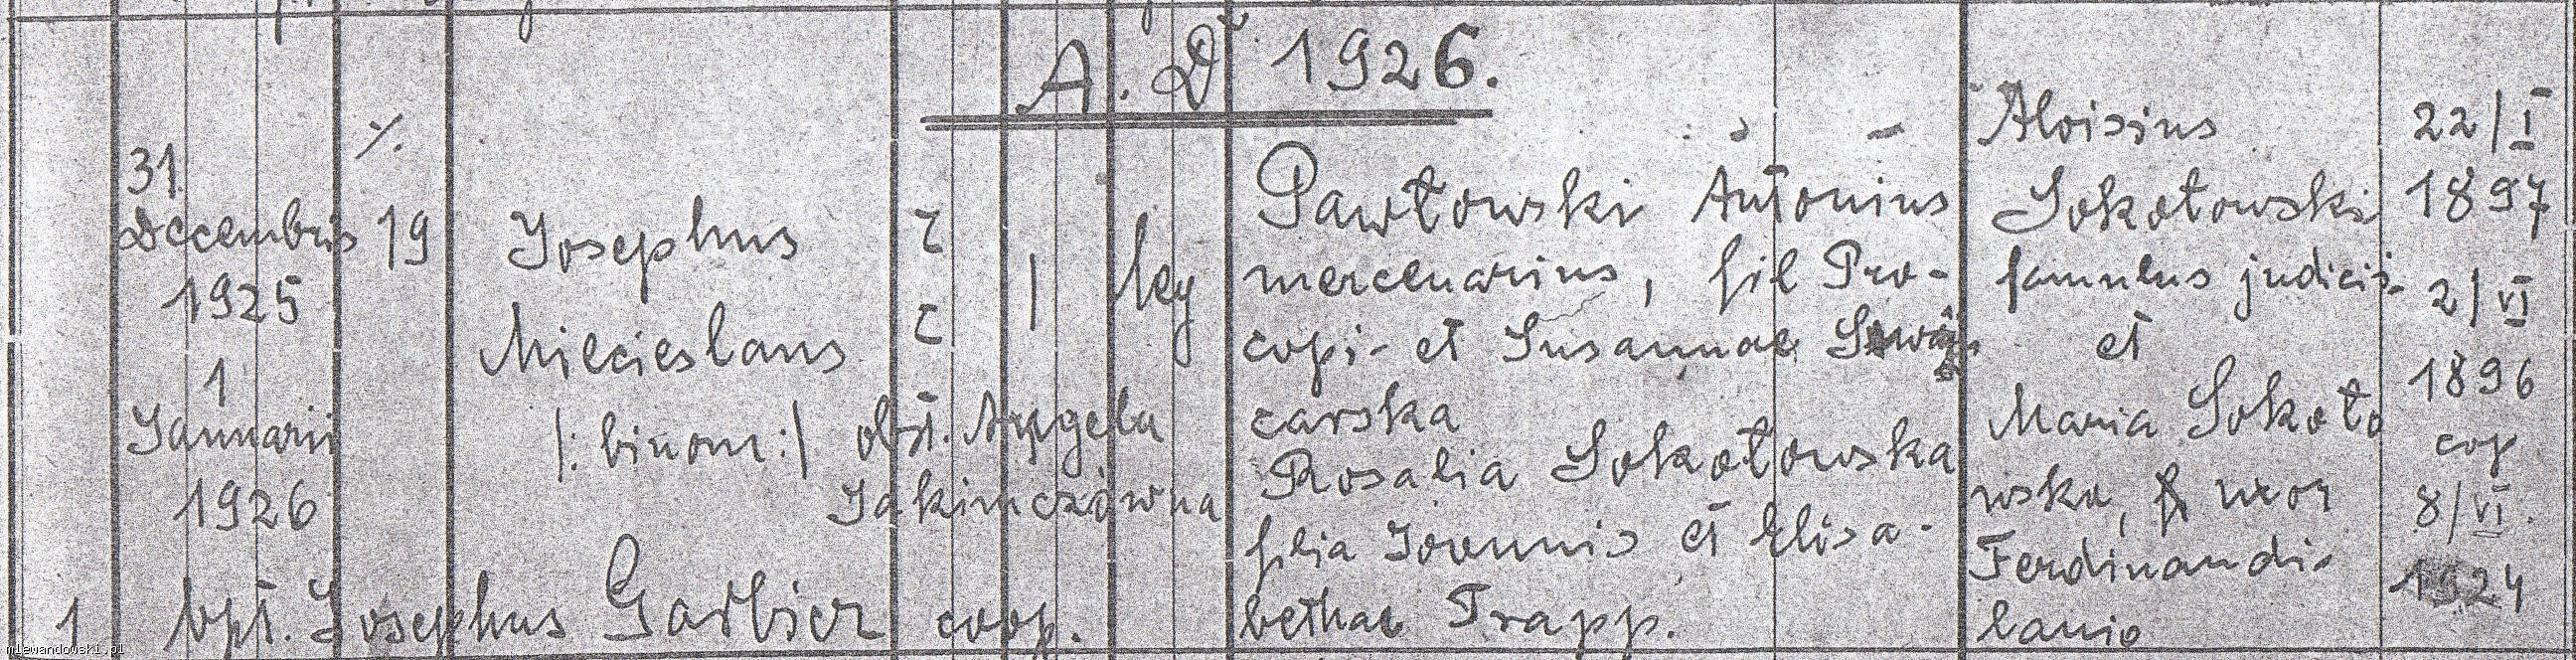 A. D. 1926.
31.
Decembris
1925
1
Januarii
1926
1
%
19
Josephus
Miecieslaus
/: binom :/
obst. Angela
Jakimczówna
bpt. Josephus Garbier coop.
1
leg
Pawłowski Antonius
mercenarius, fil Pro-
copi et Susannae
carska
Rosalia Sokołowska
filia Joannis et Elisa-
bethae Trapp.
Aloisius
Sokołowski
famulus judicii
et
Maria Sokoło
wska, uxor
Ferdinandi
lanio
22/I
1897
2/VI
1896
cop
8/VI.
1924
mlewandowski.pl